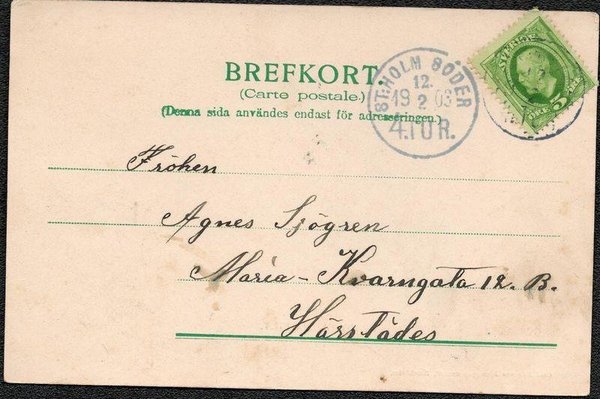 BREFKORT.
(Carte postale.)
(Denna sida användes endast för adresseringen.)
ST:HOLM SÖDER
12.
19 2 03
4. TUR.
SVERIGE
Fröken
Agnes Sjögren
Maria-Kvarngata 12. B.
Härstädes